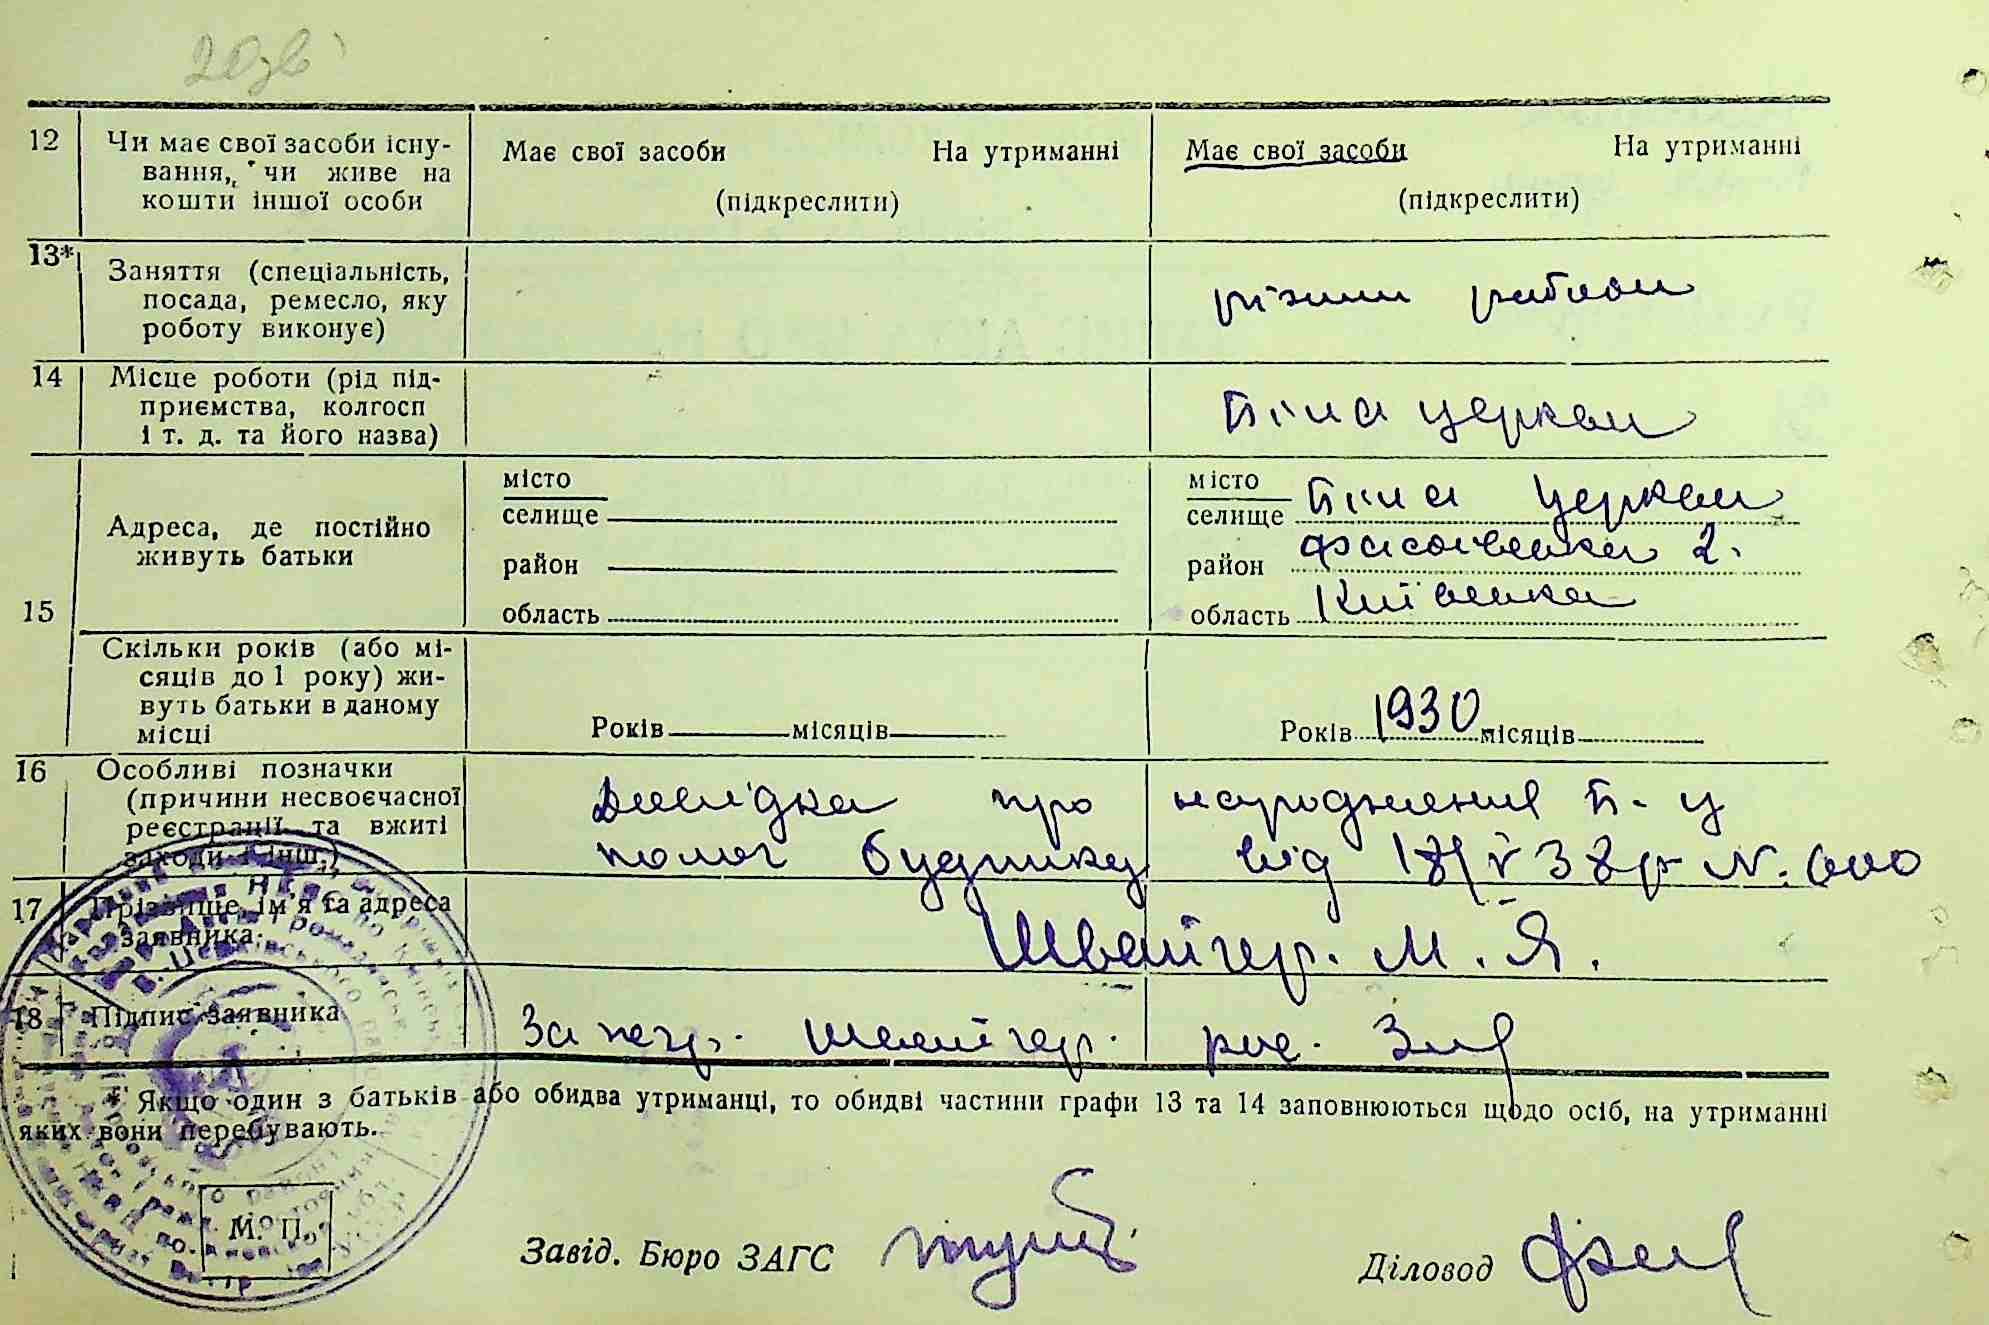 12 Чи має свої засоби існу-
вання, чи живе на
кошти іншої особи
Має свої засоби На утриманні
(підкреслити)
Має свої засоби На утриманні
(підкреслити)
13* Заняття (спеціальність,
посада, ремесло, яку
роботу виконує)
різни роботи
14 Місце роботи (рід під-
приємства, колгосп
і т. д. та його назва)
Біла церква
15 Адреса, де постійно
живуть батьки
місто
селище
район
область
місто Біла Церква
селище
район 2.
область Київська
Скільки років (або мі-
сяців до 1 року) жи-
вуть батьки в даному
місці
Років місяців
Років 1930 місяців
16 Особливі позначки
(причини несвоєчасної
реєстрації та вжиті
заходи і інш.)
Довідка про народження Б-Ц
полог будинку від 18/V 38р N.
17 Прізвище, ім'я та адреса
заявника
Швейгер. М. Я.
18 Підпис заявника
За Швейгер. рос.
* Якщо один з батьків або обидва утриманці, то обидві частини графи 13 та 14 заповнюються щодо осіб, на утриманні
яких вони перебувають.
М. П.
Завід. Бюро ЗАГС
Діловод